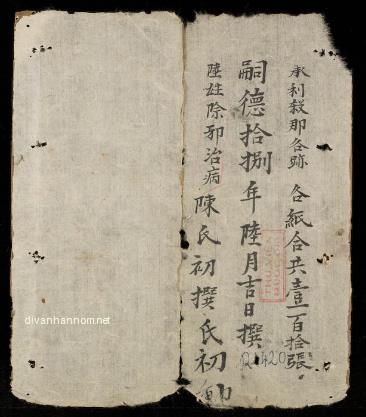 承利殺那各跡 各紙合共壹百拾張
嗣德拾捌年陸月吉日撰
陸姓除邪治病 陳氏初撰氏初
R.1420
divanhannom.net